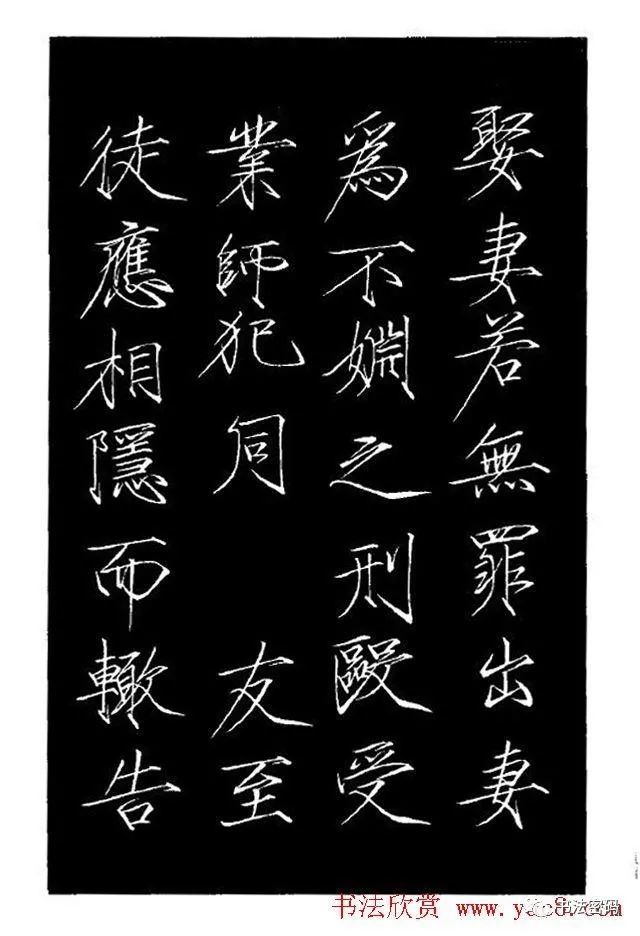 娶妻若無罪出妻
為不嫻之刑毆受
業師犯同 友至
徒應相隱而轍告
书法欣赏 www.yac8.com
书法密码